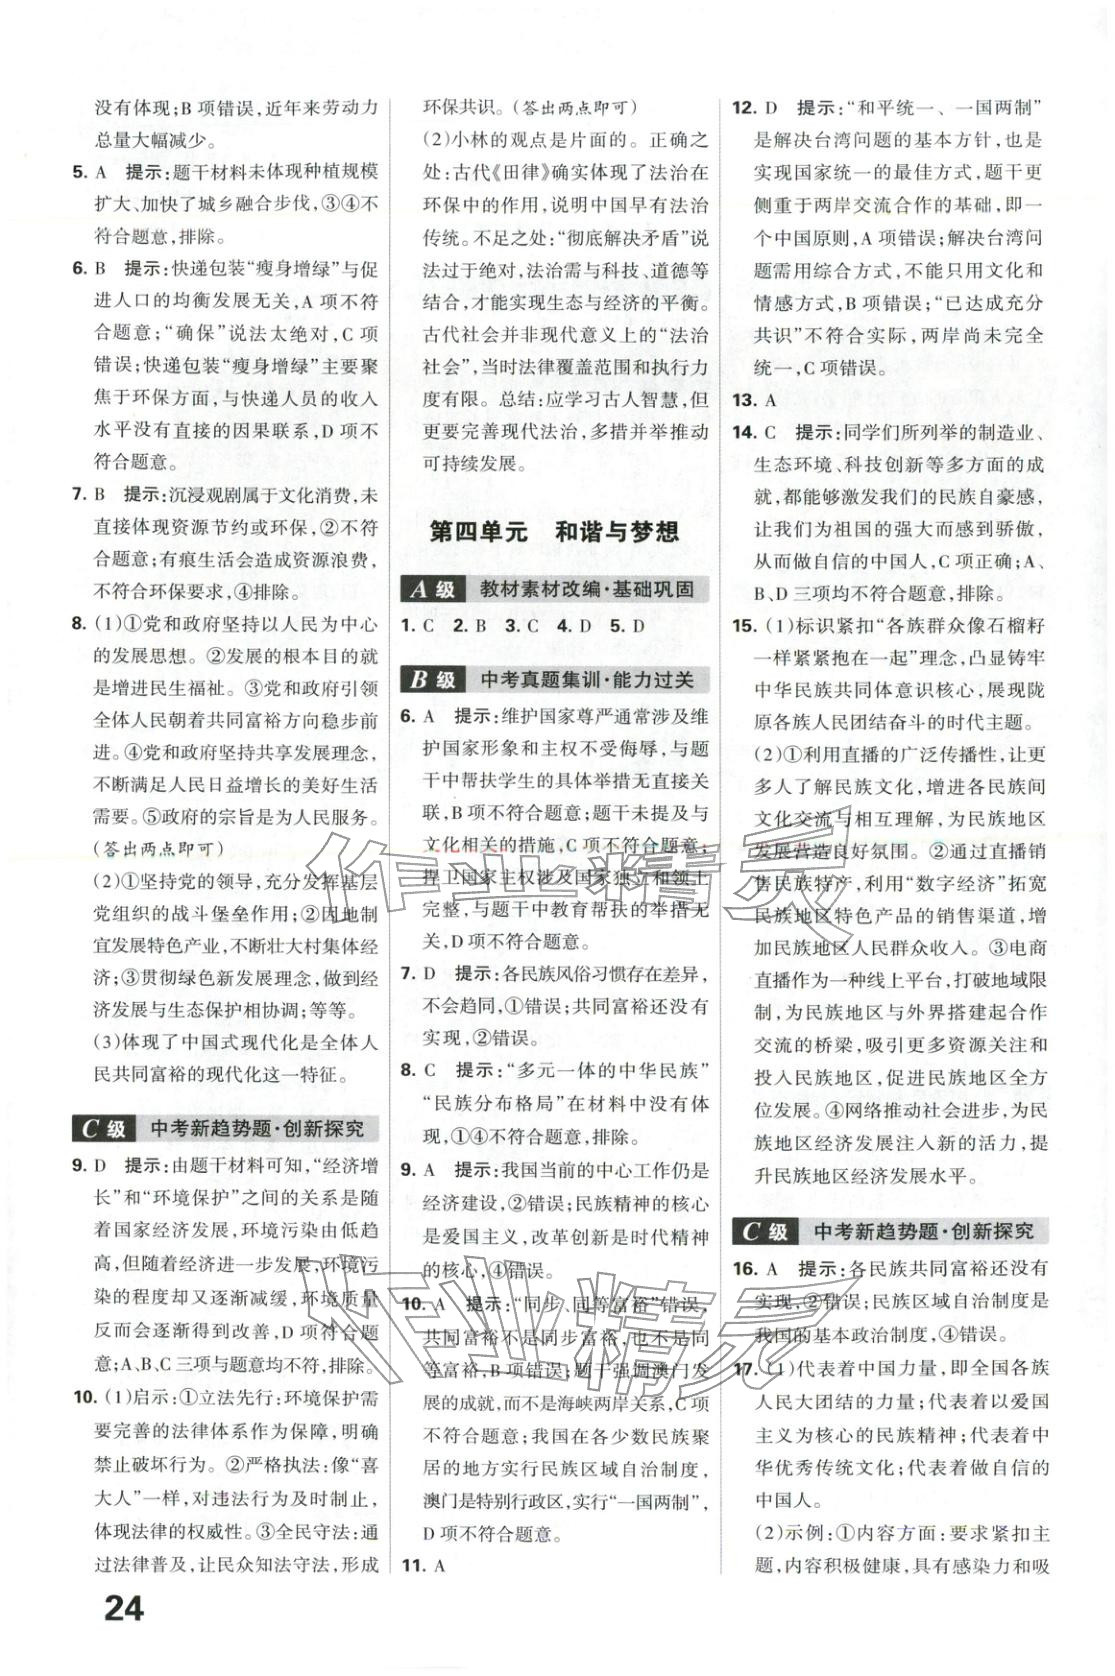 没有体现;B 项错误,近年来劳动力
总量大幅减少。
5. A 提示:题干材料未体现种植规模
扩大、加快了城乡融合步伐,③④不
符合题意,排除。
6. B 提示:快递包装“瘦身增绿”与促
进人口的均衡发展无关,A 项不符
合题意;“确保”说法太绝对,C 项
错误;快递包装“瘦身增绿”主要聚
焦于环保方面,与快递人员的收入
水平没有直接的因果联系,D 项不
符合题意。
7. B 提示:沉浸观剧属于文化消费,未
直接体现资源节约或环保,②不符
合题意;有痕生活会造成资源浪费,
不符合环保要求,④排除。
8. (1)①党和政府坚持以人民为中心
的发展思想。②发展的根本目的就
是增进民生福祉。③党和政府引领
全体人民朝着共同富裕方向稳步前
进。④党和政府坚持共享发展理念,
不断满足人民日益增长的美好生活
需要。⑤政府的宗旨是为人民服务。
(答出两点即可)
(2)①坚持党的领导,充分发挥基层
党组织的战斗堡垒作用;②因地制
宜发展特色产业,不断壮大村集体经
济;③贯彻绿色新发展理念,做到经
济发展与生态保护相协调;等等。
(3)体现了中国式现代化是全体人
民共同富裕的现代化这一特征。
C 级 中考新趋势题·创新探究
9. D 提示:由题干材料可知,“经济增
长”和“环境保护”之间的关系是随
着国家经济发展,环境污染由低趋
高,但经济发展到一定程度后,环境污
染的程度却又逐渐减缓,环境质量
反而会逐渐得到改善,D 项符合题
意;A、B、C 三项与题意均不符,排除。
10. (1)启示:①立法先行:环境保护需
要完善的法律体系作为保障,明确
禁止破坏行为。②严格执法:像“喜
大人”一样,对违法行为及时制止,
体现法律的权威性。③全民守法:通
过法律普及,让民众知法守法,形成
环保共识。(答出两点即可)
(2)小林的观点是片面的。正确之
处:古代《田律》确实体现了法治在
环保中的作用,说明中国早有法治
传统。不足之处:“彻底解决矛盾”说
法过于绝对,法治需与科技、道德等
结合,才能实现生态与经济的平衡。
古代社会并非现代意义上的“法治
社会”,当时法律覆盖范围和执行力
度有限。总结:应学习古人智慧,但
更要完善现代法治,多措并举推动
可持续发展。
第四单元 和谐与梦想
A 级 教材素材改编·基础巩固
1. C 2. B 3. C 4. D 5. D
B 级 中考真题集训·能力过关
6. A 提示:维护国家尊严通常涉及维
护国家形象和主权不受侮辱,与题
干中帮扶学生的具体举措无直接关
联,B 项不符合题意;题干未提及与
文化相关的措施,C 项不符合题意;
捍卫国家主权涉及国家独立和领土
完整,与题干中教育帮扶的举措无
关,D 项不符合题意。
7. D 提示:各民族风俗习惯存在差异,
不会趋同,①错误;共同富裕还没有
实现,②错误。
8. C 提示:“多元一体的中华民族”
“民族分布格局”在材料中没有体
现,①④不符合题意,排除。
9. A 提示:我国当前的中心工作仍是
经济建设,②错误;民族精神的核心
是爱国主义,改革创新是时代精神
的核心,④错误。
10. A 提示:“同步、同等富裕”错误,
共同富裕不是同步富裕,也不是同
等富裕,B 项错误;题干强调澳门发
展的成就,而不是海峡两岸关系,C 项
不符合题意;我国在各少数民族聚
居的地方实行民族区域自治制度,
澳门是特别行政区,实行“一国两制”,
D 项不符合题意。
11. A
12. D 提示:“和平统一、一国两制”
是解决台湾问题的基本方针,也是
实现国家统一的最佳方式,题干更
侧重于两岸交流合作的基础,即一
个中国原则,A 项错误;解决台湾问
题需用综合方式,不能只用文化和
情感方式,B 项错误;“已达成充分
共识”不符合实际,两岸尚未完全
统一,C 项错误。
13. A
14. C 提示:同学们所列举的制造业、
生态环境、科技创新等多方面的成
就,都能够激发我们的民族自豪感,
让我们为祖国的强大而感到骄傲,
从而做自信的中国人,C 项正确;A、
B、D 三项均不符合题意,排除。
15. (1)标识紧扣“各族群众像石榴籽
一样紧紧抱在一起”理念,凸显铸牢
中华民族共同体意识核心,展现陇
原各族人民团结奋斗的时代主题。
(2)①利用直播的广泛传播性,让更
多人了解民族文化,增进各民族间
文化交流与相互理解,为民族地区
发展营造良好氛围。②通过直播销
售民族特产,利用“数字经济”拓宽
民族地区特色产品的销售渠道,增
加民族地区人民群众收入。③电商
直播作为一种线上平台,打破地域限
制,为民族地区与外界搭建起合作
交流的桥梁,吸引更多资源关注和
投入民族地区,促进民族地区全方
位发展。④网络推动社会进步,为民
族地区经济发展注入新的活力,提
升民族地区经济发展水平。
C 级 中考新趋势题·创新探究
16. A 提示:各民族共同富裕还没有
实现,②错误;民族区域自治制度是
我国的基本政治制度,④错误。
17. (1)代表着中国力量,即全国各族
人民大团结的力量;代表着以爱国
主义为核心的民族精神;代表着中
华优秀传统文化;代表着做自信的
中国人。
(2)示例:①内容方面:要求紧扣主
题,内容积极健康,具有感染力和吸
24
作业精灵
作业精灵